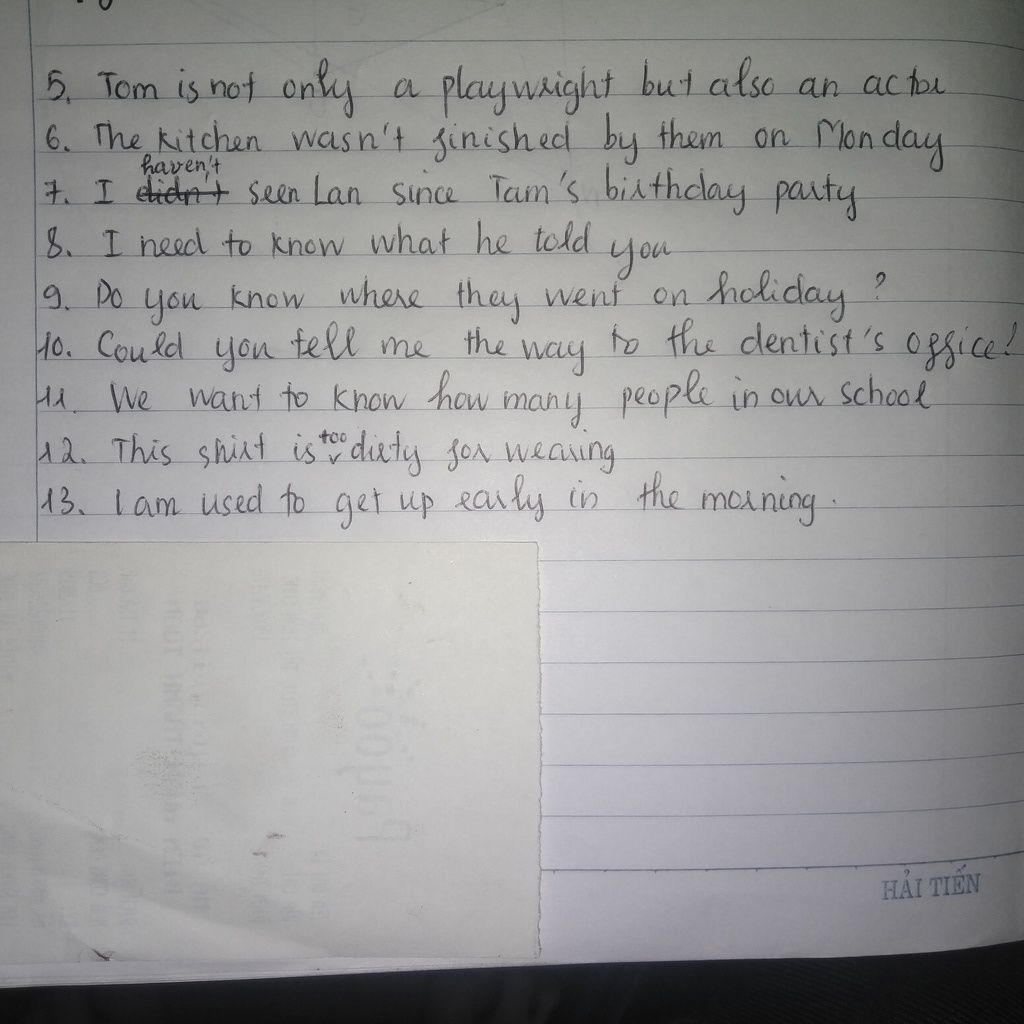 5. Tom is not only a playwright but also an actor
6. The kitchen wasn't finished by them on Monday
haven't
7. I didn't seen Lan since Tam's birthday party
8. I need to know what he told you
9. Do you know where they went on holiday ?
10. Could you tell me the way to the dentist's office?
11. We want to know how many people in our school
12. This shirt is too dirty for wearing
13. I am used to get up early in the morning.
Payoo
HẢI TIẾN